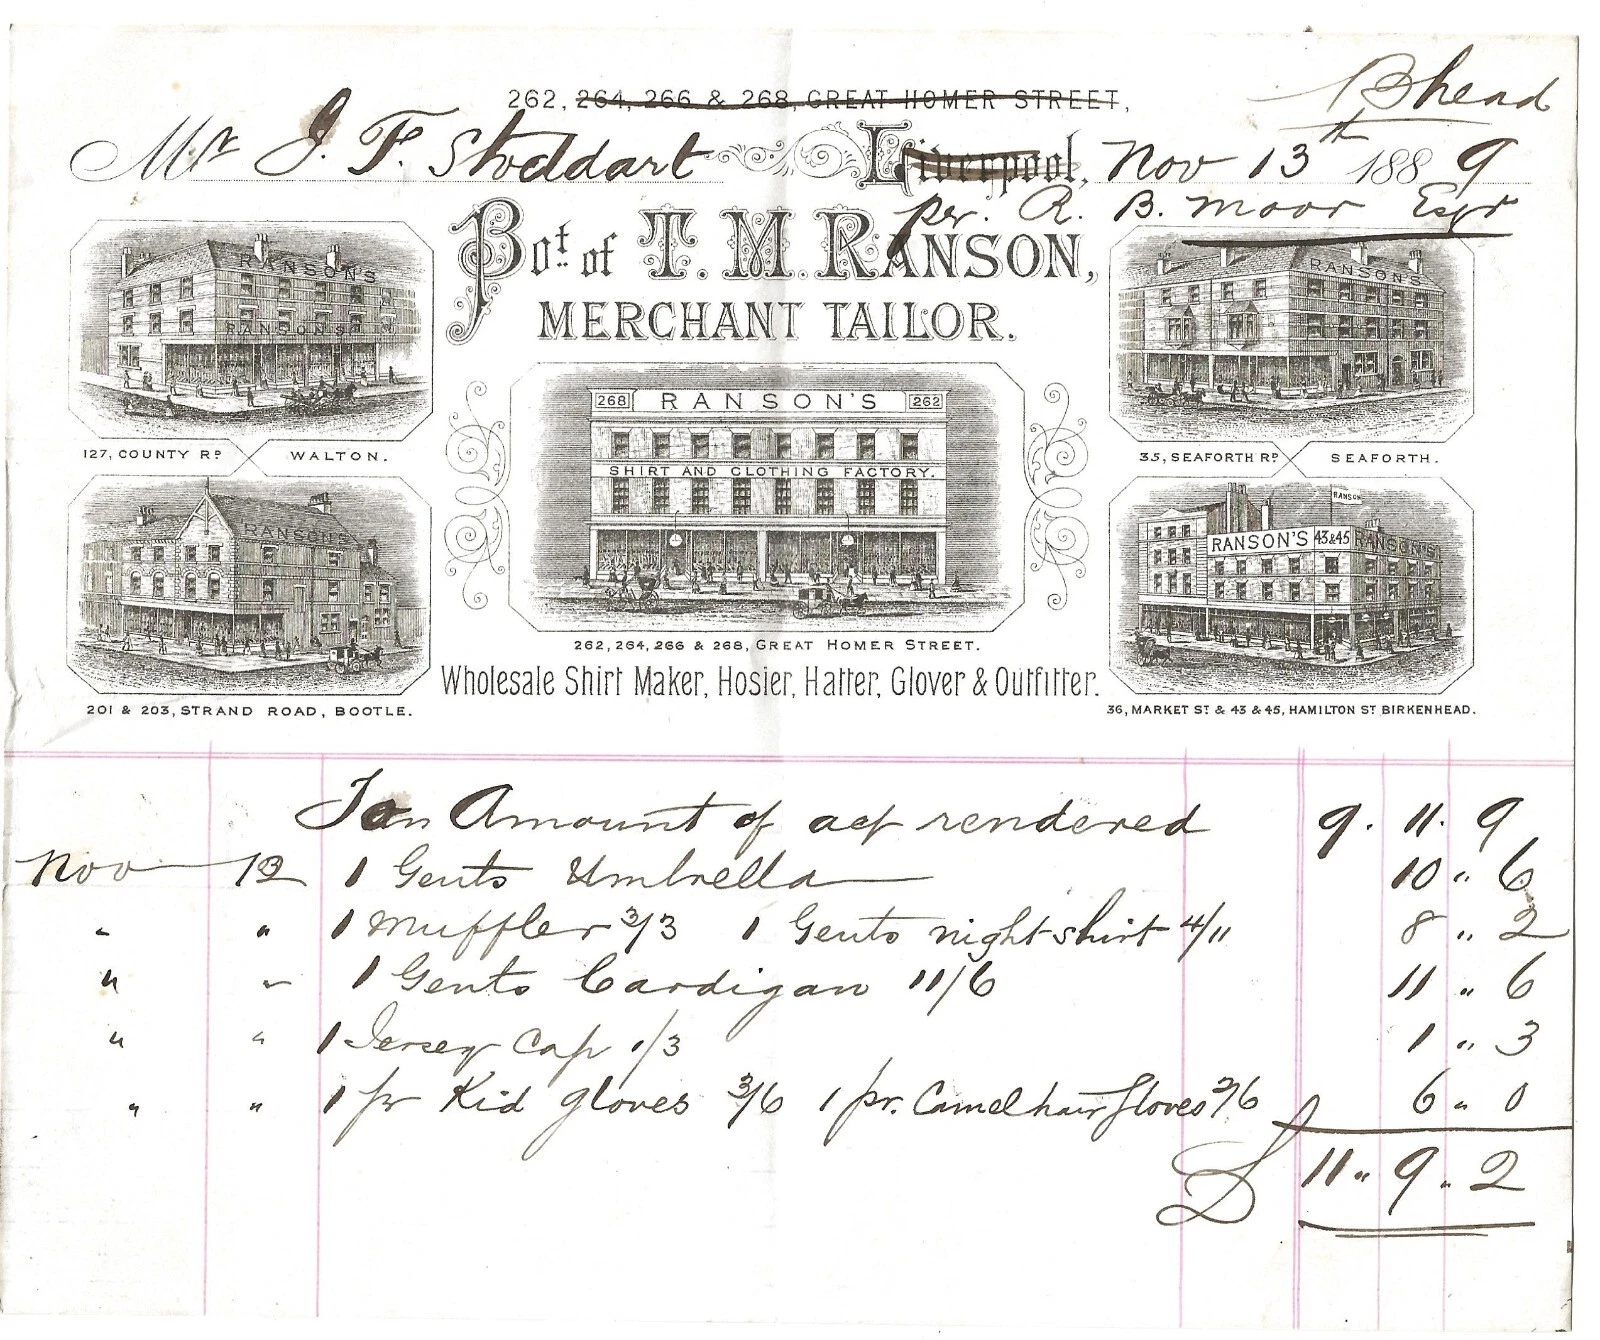 262, 264, 266 & 268, GREAT HOMER STREET,
B head
Mr J. F. Stoddart Liverpool, Nov 13th 1889
per. R. B. Moor Esqr
Bot. of T. M. RANSON,
MERCHANT TAILOR.
RANSON'S
RANSON'S
127, COUNTY RD WALTON.
RANSON'S
35, SEAFORTH RD SEAFORTH.
268 RANSON'S 262
SHIRT AND CLOTHING FACTORY.
262, 264, 266 & 268, GREAT HOMER STREET.
RANSON'S
201 & 203, STRAND ROAD, BOOTLE.
RANSON
RANSON'S 43 & 45 RANSON'S
36, MARKET ST & 43 & 45, HAMILTON ST BIRKENHEAD.
Wholesale Shirt Maker, Hosier, Hatter, Glover & Outfitter.
Amount of acf rendered 9. 11. 9
Nov 13 1 Gents Umbrella 10 " 6
" " 1 Muffler 3/3 1 Gents nightshirt 4/11 8 " 2
" " 1 Gents Cardigan 11/6 11 " 6
" " 1 Jersey Cap 1/3 1 " 3
" " 1 pr Kid gloves 3/6 1 pr. Camelhair gloves 2/6 6 " 0
£ 11 " 9 " 2